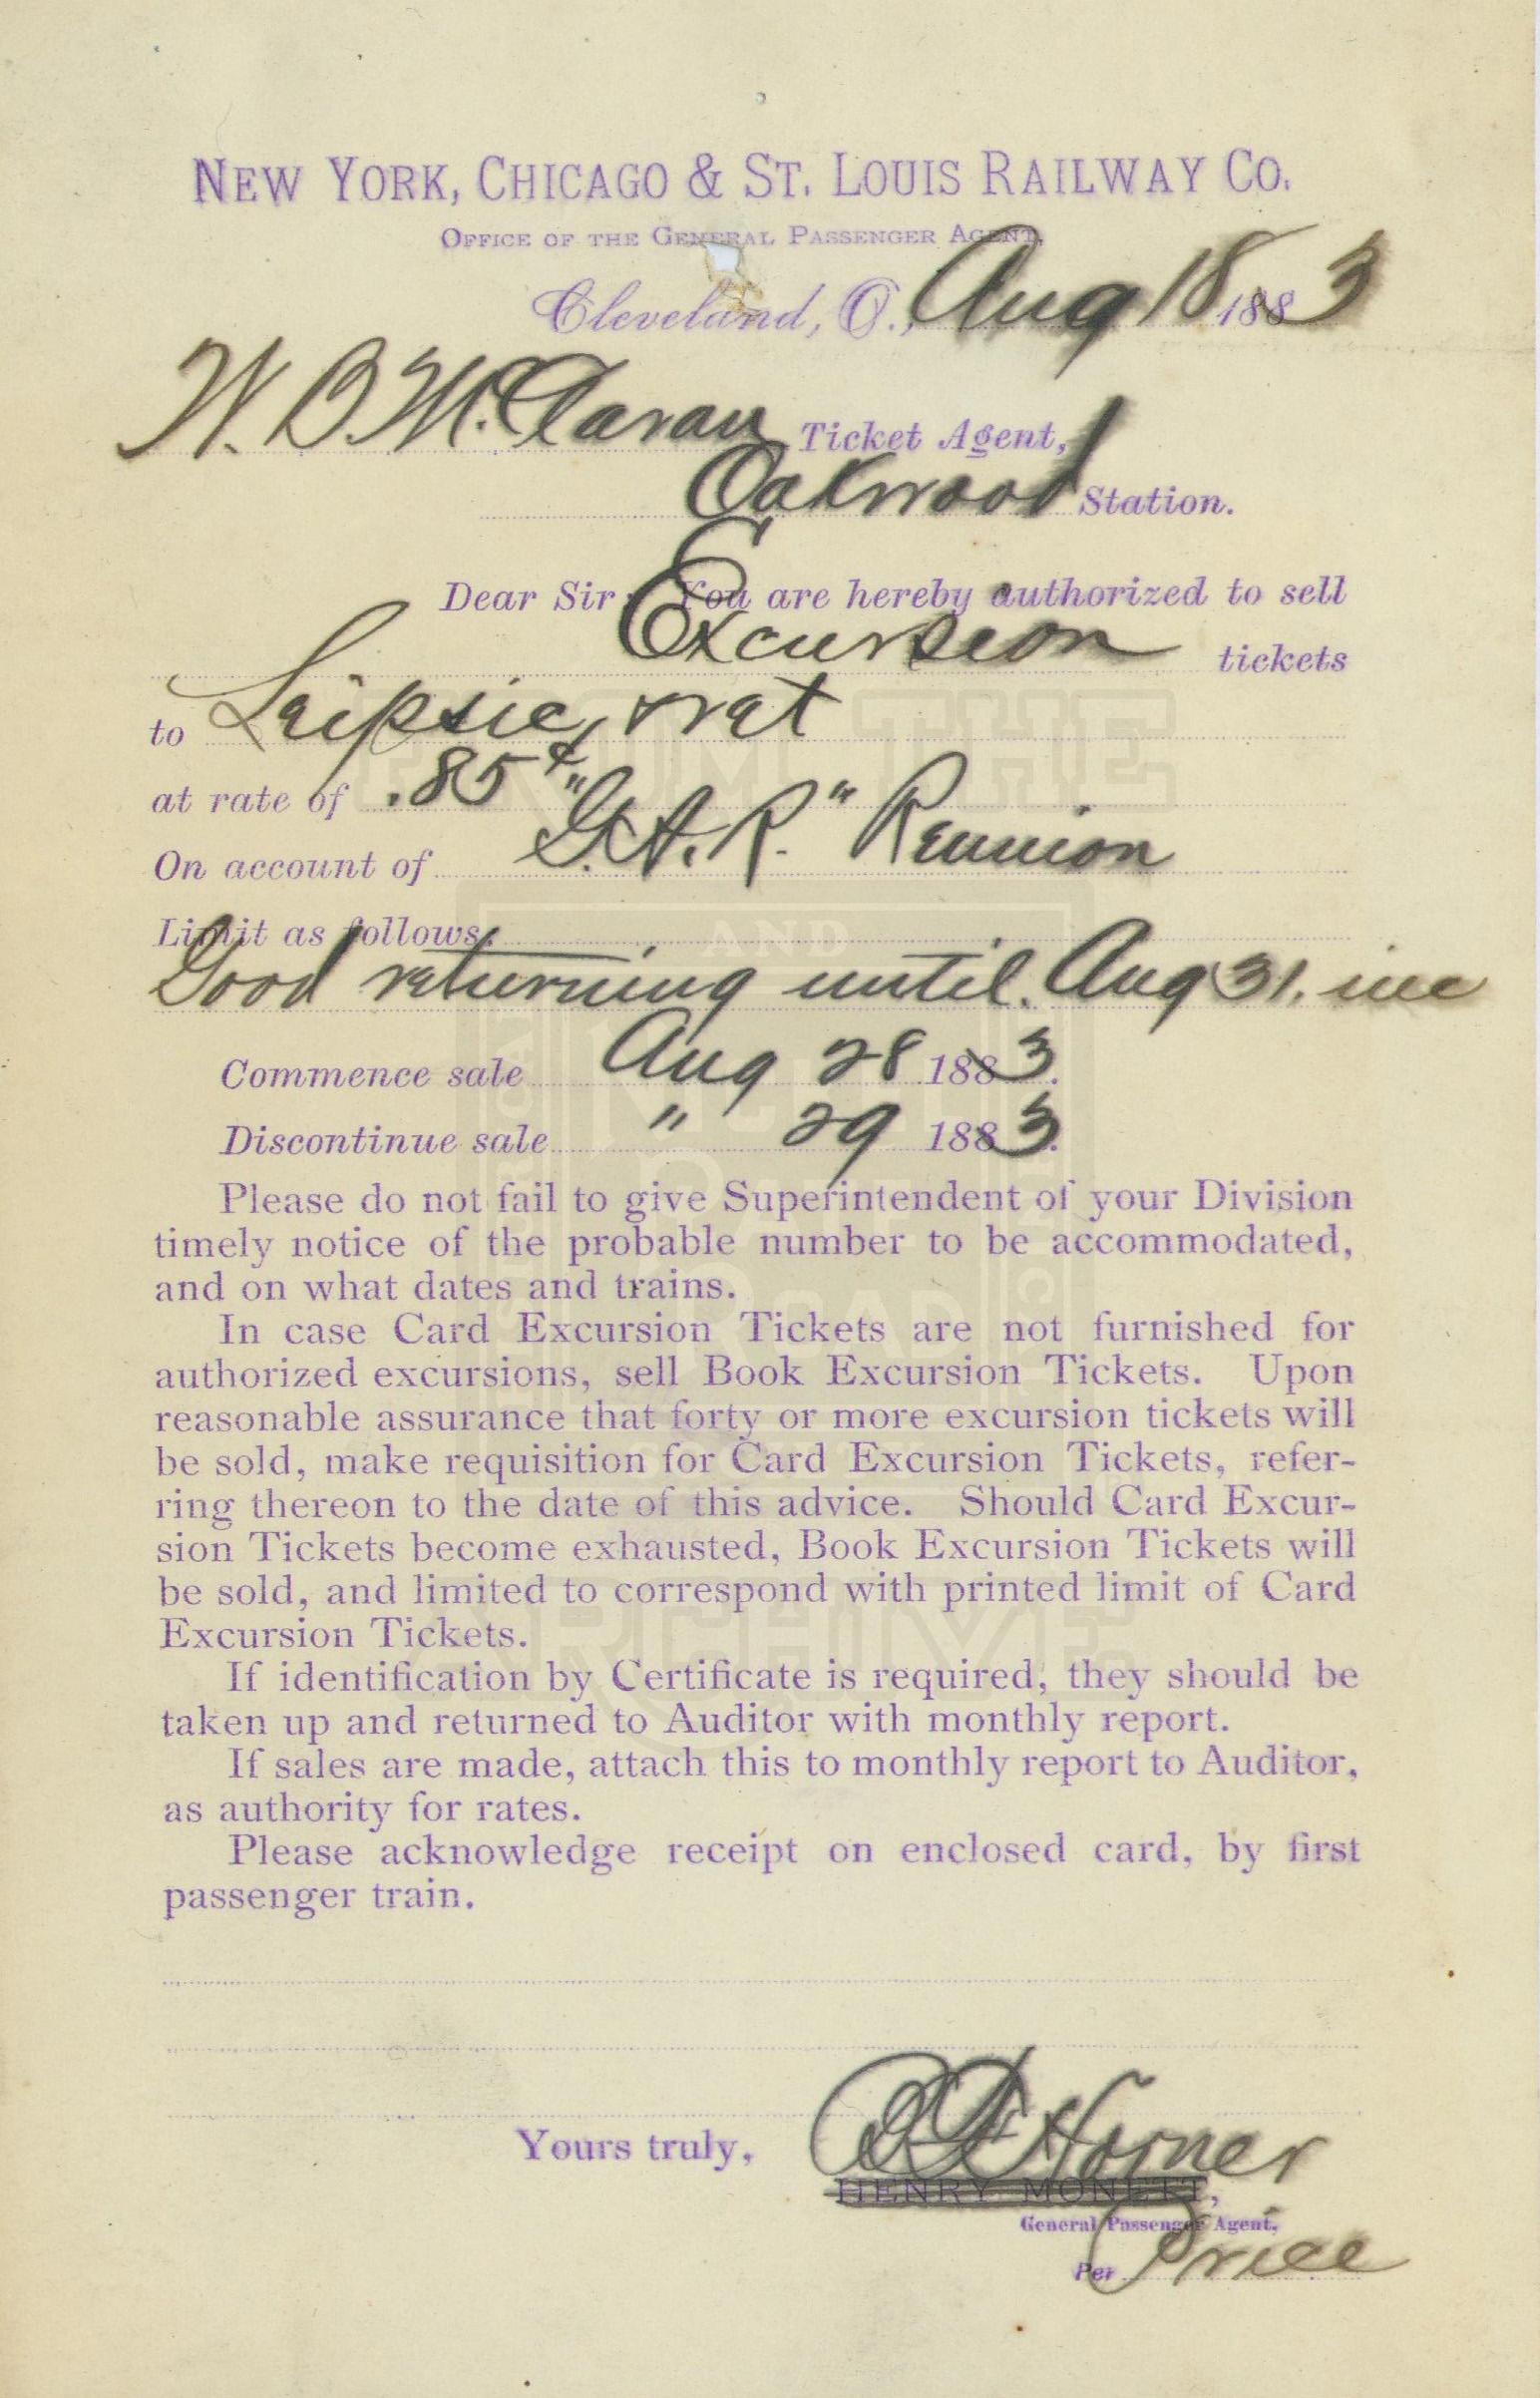 NEW YORK, CHICAGO & ST. LOUIS RAILWAY CO.
OFFICE OF THE GENERAL PASSENGER AGENT.
Cleveland, O., Aug 18 1883
Ticket Agent,
Oakwood Station.
Dear Sir: You are hereby authorized to sell
Excursion tickets
to Leipsic, & ret
at rate of .85¢
On account of "G.A.R." Reunion
Limit as follows:
Good returning until Aug 31. inc
Commence sale Aug 28 1883.
Discontinue sale " 29 1883.
Please do not fail to give Superintendent of your Division
timely notice of the probable number to be accommodated,
and on what dates and trains.
In case Card Excursion Tickets are not furnished for
authorized excursions, sell Book Excursion Tickets. Upon
reasonable assurance that forty or more excursion tickets will
be sold, make requisition for Card Excursion Tickets, refer-
ring thereon to the date of this advice. Should Card Excur-
sion Tickets become exhausted, Book Excursion Tickets will
be sold, and limited to correspond with printed limit of Card
Excursion Tickets.
If identification by Certificate is required, they should be
taken up and returned to Auditor with monthly report.
If sales are made, attach this to monthly report to Auditor,
as authority for rates.
Please acknowledge receipt on enclosed card, by first
passenger train.
Yours truly, Horner
HENRY MONETT,
General Passenger Agent.
Per Price